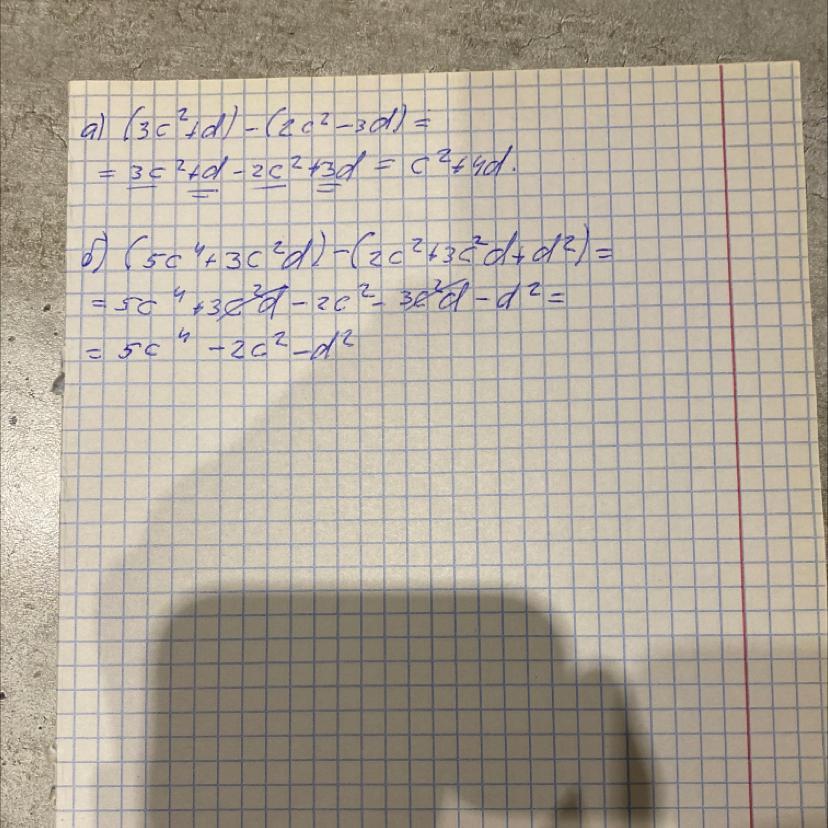 а) (3c²+d)-(2c²-3d)=
= 3c²+d-2c²+3d = c²+4d.
б) (5c⁴+3c²d)-(2c²+3c²d+d²)=
=5c⁴+3c²d-2c²-3c²d-d²=
=5c⁴-2c²-d²